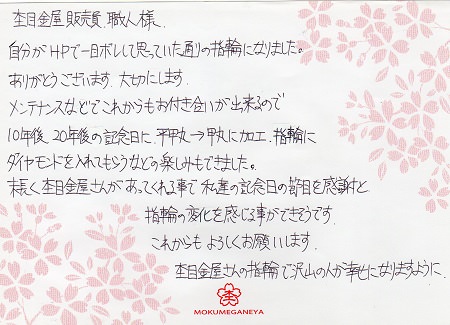 杢目金屋 販売員、職人様へ
自分がHPで一目ボレして思っていた通りの指輪になりました。
ありがとうございます。大切にします。
メンテナンスなどでこれからもお付き合いが出来るので
10年後、20年後の記念日に、平甲丸→甲丸に加工、指輪に
ダイヤモンドを入れてもらうなどの楽しみもできました。
末長く杢目金屋さんがあってくれる事で私達の記念日の節目を感謝と
指輪の変化を感じる事ができそうです。
これからもよろしくお願いします。
杢目金屋さんの指輪で沢山の人が幸せになりますように。
MOKUMEGANEYA